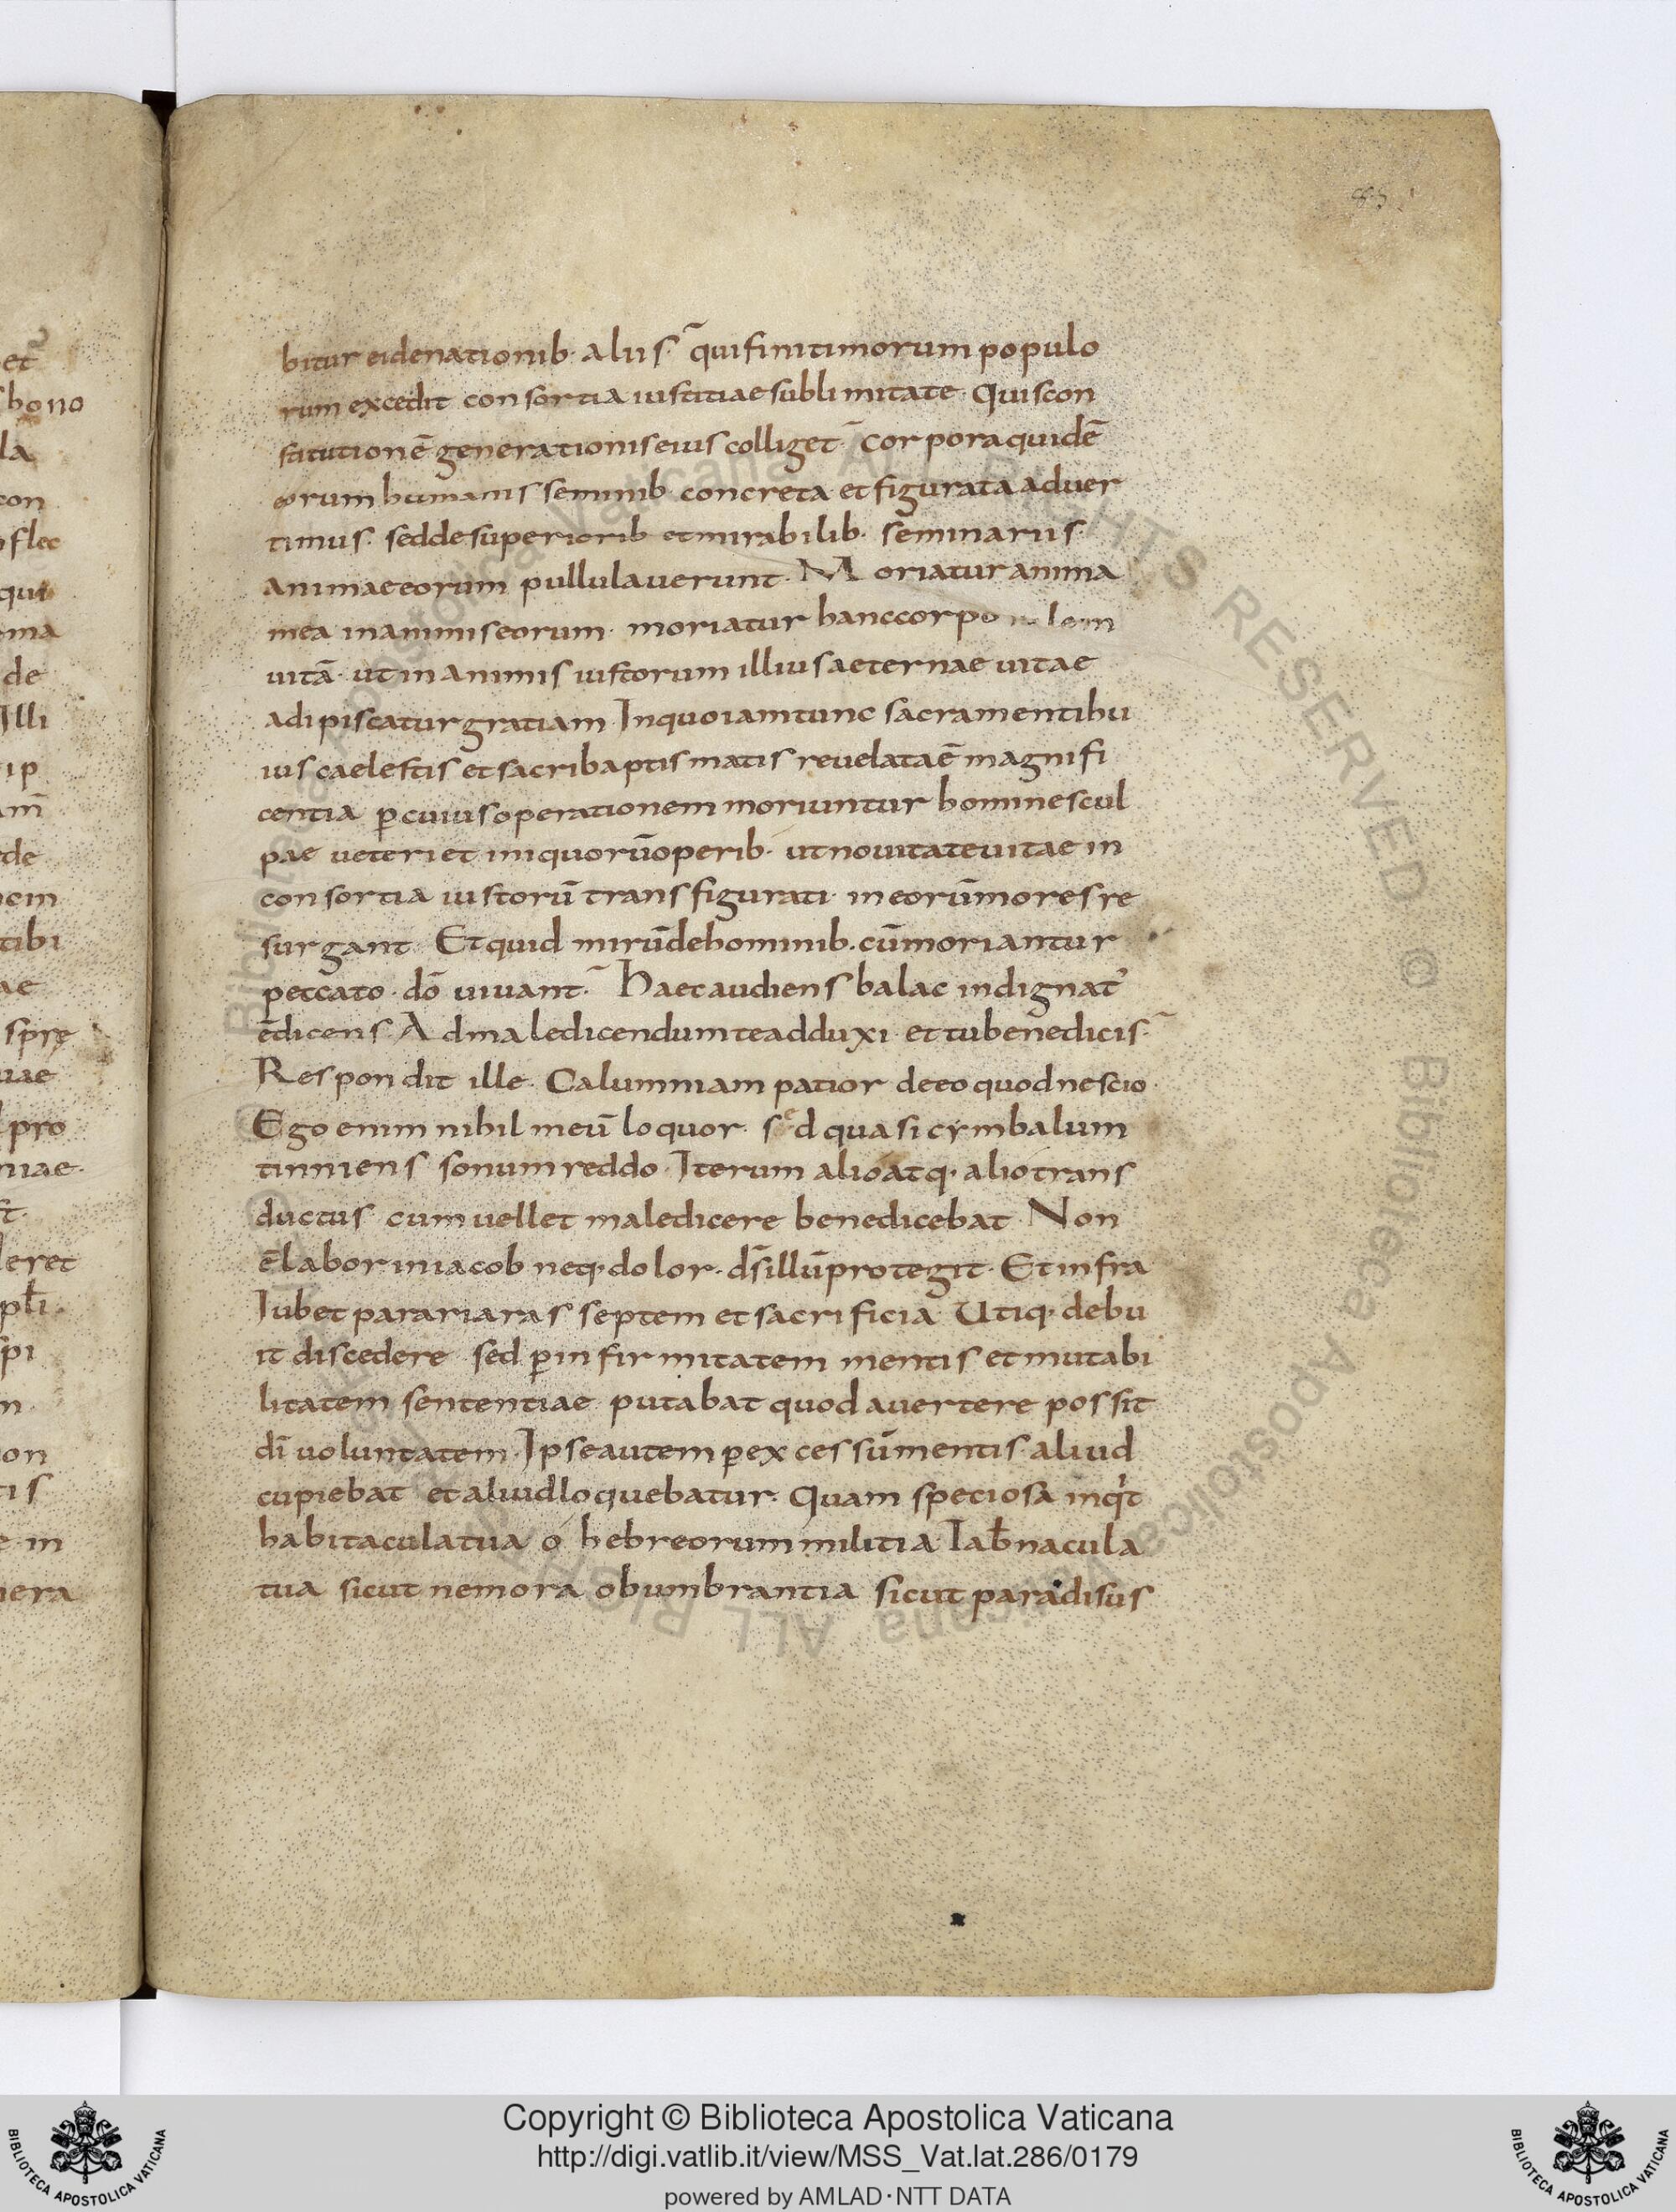 et
bono
la
con
flec
qui
ma
de
Illi
ip
am̄
de
nem
tibi
ae
sprę
uae
pro
niae.
leret
płi.
spi
on
tis
e in
nera
85
bitur eidenationib. aliis. qui finitimorum populo
rum excedit consortia iustitiae sublimitate. Quis con
stitutionē generationis eius colliget. Corpora quidē
eorum humanis seminib. concreta et figurata aduer
timus. sed de superiorib et mirabilib. seminariis.
animae eorum pullulauerunt. Moriatur anima
mea in animis eorum. moriatur hanc corporalem
uitā. ut in animis iustorum illius aeternae uitae
adipiscatur gratiam. In quo iam tunc sacramenti hu
ius caelestis et sacri baptismatis reuelata ē magnifi
centia p̄ cuius operationem moriuntur homines cul
pae ueteri et iniquorū operib. ut nouitate uitae in
consortia iustorū transfigurati. in eorū mores re
surgant. Et quid mirū de hominib. cū moriantur
peccato. dō uiuant. Haec audiens balac indignat᾽
ē dicens. Ad maledicendum te adduxi. et tu benedicis.
Respondit ille. Calumniam patior de eo quod nescio.
Ego enim nihil meū loquor. sed quasi cymbalum
tinniens sonum reddo. Iterum alio atq. alio trans
ductus cum uellet maledicere benedicebat. Non
ē labor in iacob neq. dolor. ds̄ illū protegit. Et infra
Iubet parari aras septem et sacrificia. Utiq. debu
it discedere sed p̄ infirmitatem mentis et mutabi
litatem sententiae putabat quod auertere possit
dī uoluntatem. Ipse autem p̄ excessū mentis. aliud
cupiebat et aliud loquebatur. Quam speciosa inq̇t
habitacula tua o hebreorum militia. Tab̄nacula
tua sicut nemora obumbrantia sicut paradisus
Copyright © Biblioteca Apostolica Vaticana
http://digi.vatlib.it/view/MSS_Vat.lat.286/0179
powered by AMLAD·NTT DATA
BIBLIOTECA APOSTOLICA VATICANA
BIBLIOTECA APOSTOLICA VATICANA